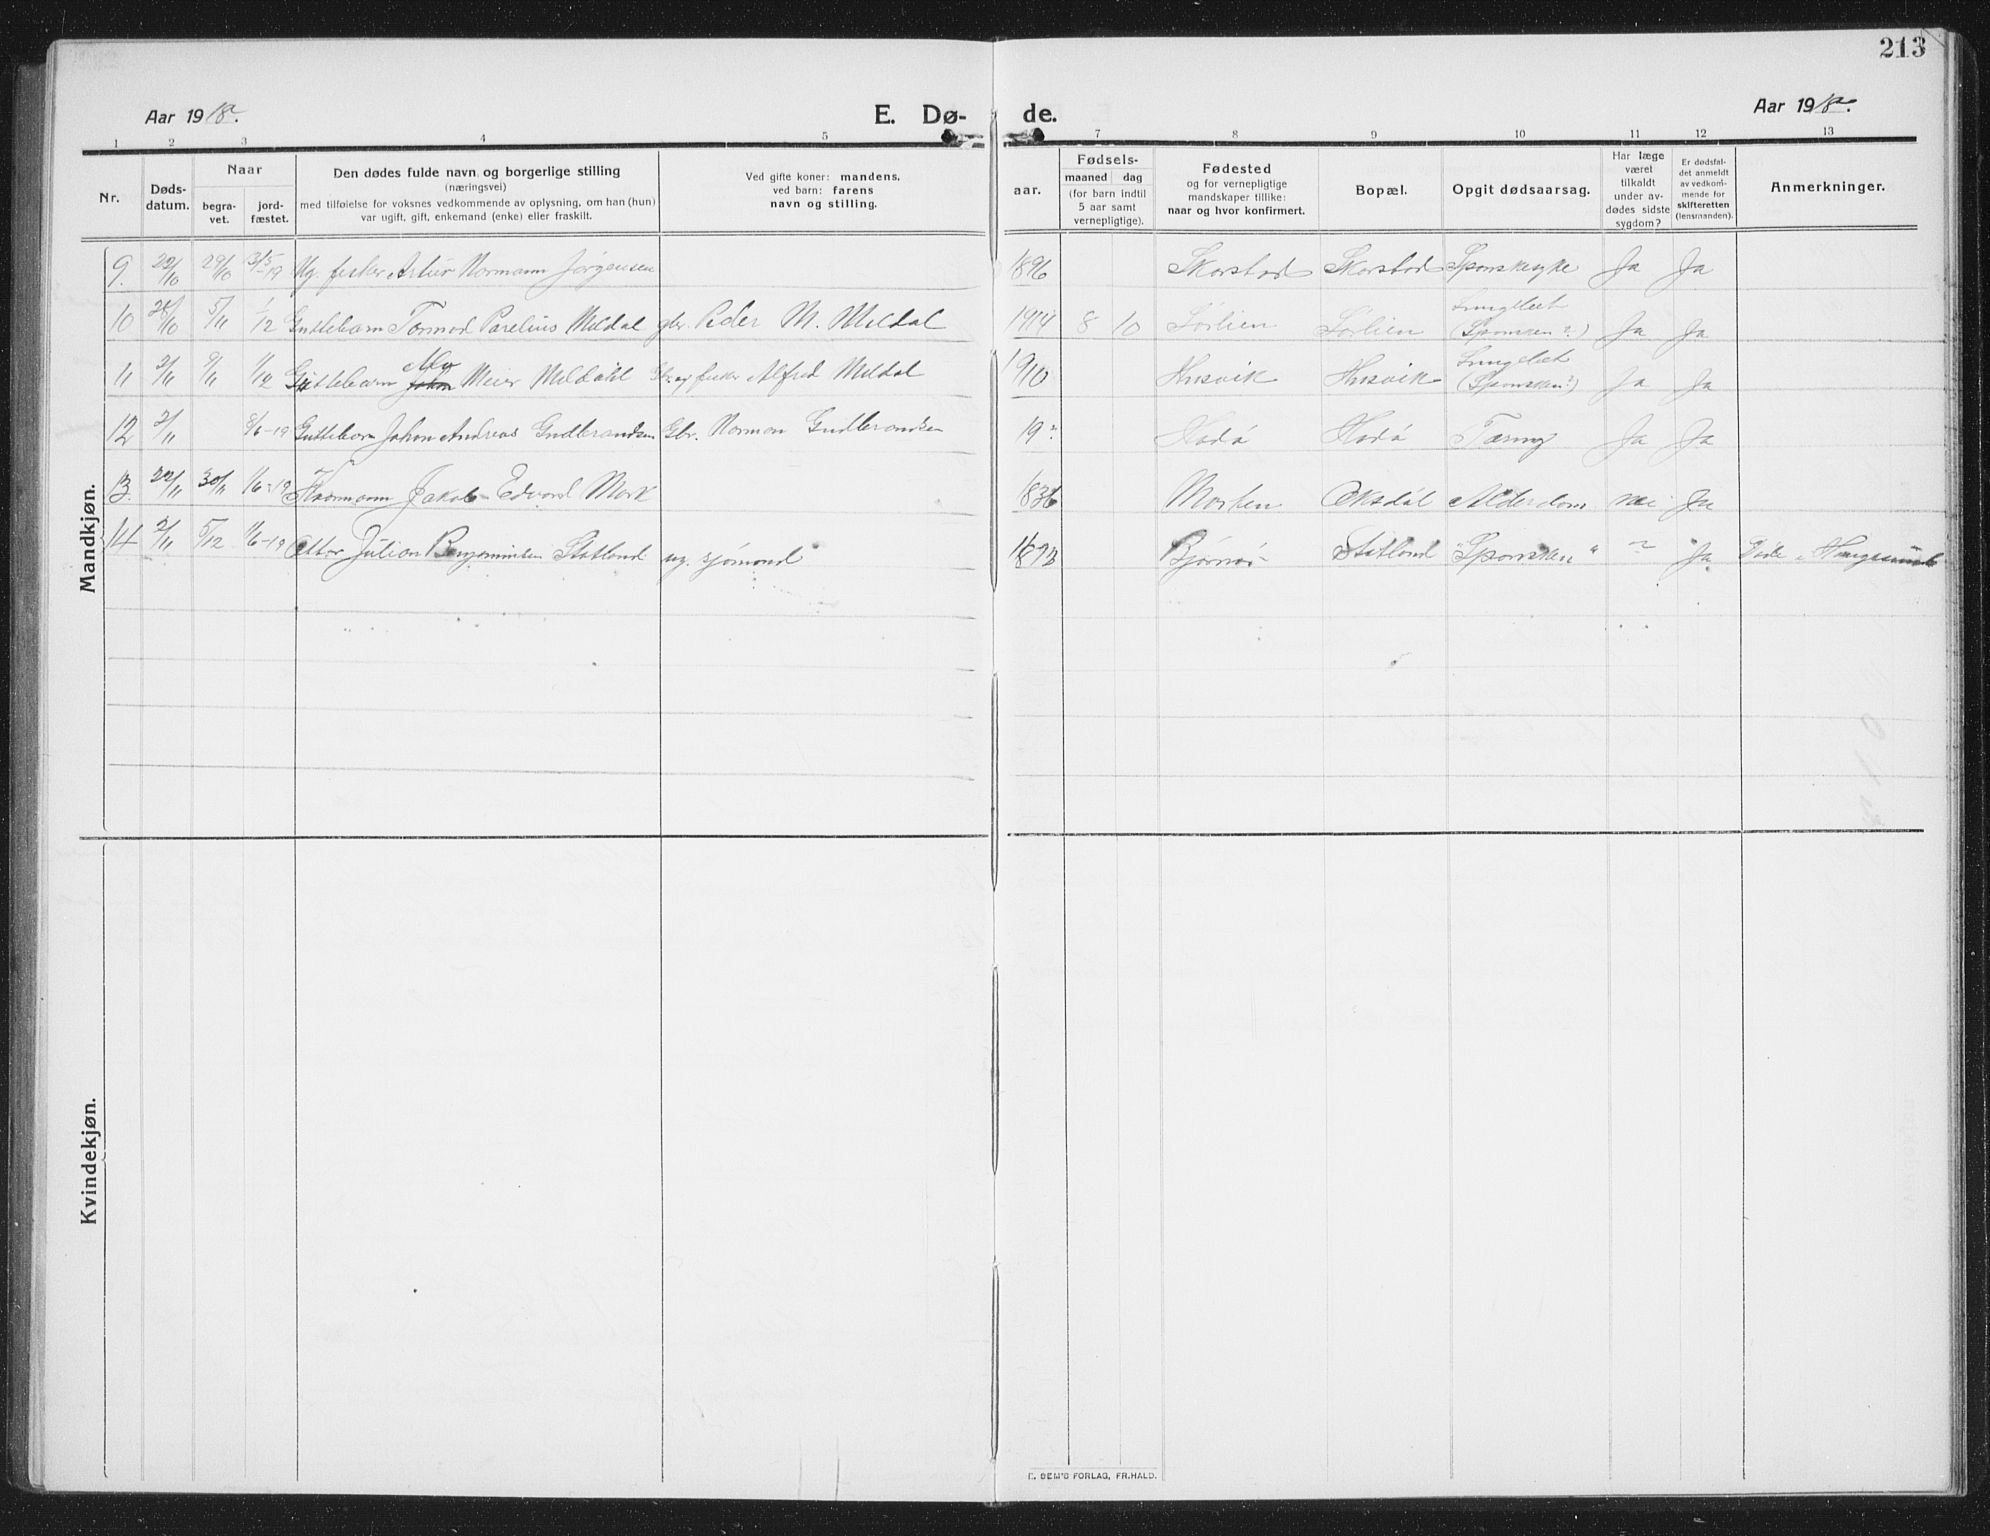 213
Aar 1918a.
E. Dø-
de.
Aar 1918a.
1 2 3 4 5 7 8 9 10 11 12 13
Nr.
Døds-
datum.
Naar
begra-
vet.
jord-
fæstet.
Den dødes fulde navn og borgerlige stilling
(næringsvei)
med tilføielse for voksnes vedkommende av oplysning, om han (hun)
var ugift, gift, enkemand (enke) eller fraskilt.
Ved gifte koner: mandens,
ved barn: farens
navn og stilling.
aar.
Fødsels-
maaned dag
(for barn indtil
5 aar samt
vernepligtige).
Fødested
og for vernepligtige
mandskaper tillike:
naar og hvor konfirmert.
Bopæl.
Opgit dødsaarsag.
Har læge
været
tilkaldt
under av-
dødes sidste
sygdom?
Er dødsfal-
det anmeldt
av vedkom-
mende for
skifteretten
(lensmanden).
Anmerkninger.
Mandkjøn.
9. 22/10 29/10 31/5-19 Ug. fisker Artur Normann Jørgensen 1896 Skorstad Skorstad Spanskesyke Ja Ja
10 28/10 5/11 1/12 Guttebarn Tormod Parelius Meldal gbr. Peder M. Meldal 1914 8 10 Sørlien Sørlien Ja Ja
11 2/11 9/11 1/12 Guttebarn Meier Meldahl fisker Alfred Meldal 1910 Husvik Husvik Ja Ja
12 2/11 8/6-19 Guttebarn Johan Andreas Gudbrandsen Gbr. Norman Gudbrandsen 19 Hodø Hodø Tæring Ja Ja
13. 22/11 30/11 1/6-19 Kaarmann Jakob Edvard Mork 1836 Morken Oksdal Alderdom nei Ja
14 2/11 5/12 1/6-19 Ottar Julian Benjaminsen Statland ug. sjømand 1892 Bjørnør Statland "Spansken" ? Ja Døde i Haugesund
Kvindekjøn.
E. SEM'S FORLAG, FR.HALD.